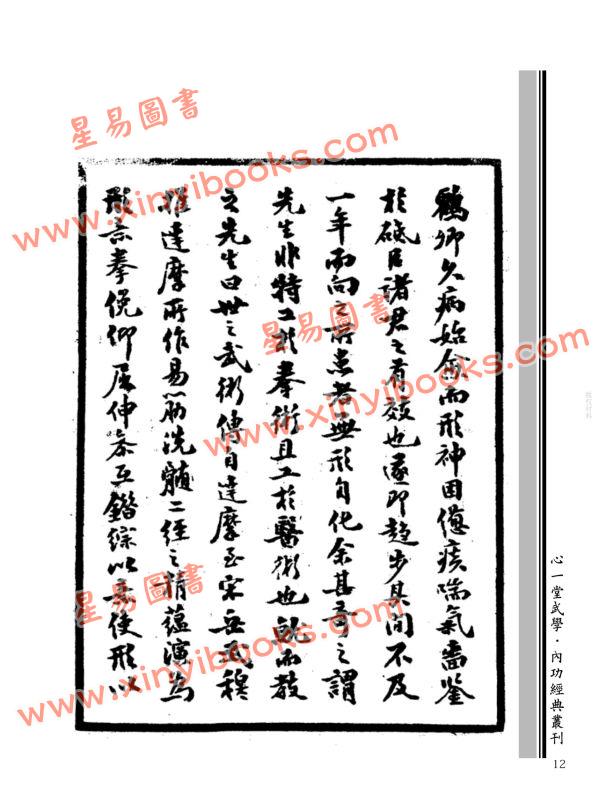 鶴卿久病始愈而形神困憊痰喘氣嗇鑒
於臣諸君之有效也遂即趨步其間不及
一年而向之所患者無形自化余甚奇之謂
先生非特工形拳術且工於醫術也就而教
之先生曰世之武術傳自達摩至宋岳武穆
推達摩所作易筋洗髓二經之精蘊演為
形意拳俛仰屈伸參互錯綜以意使形以
心一堂武學・內功經典叢刊
12
星易圖書
www.xinyibooks.com
星易圖書
www.xinyibooks.com
星易圖書
www.xinyibooks.com